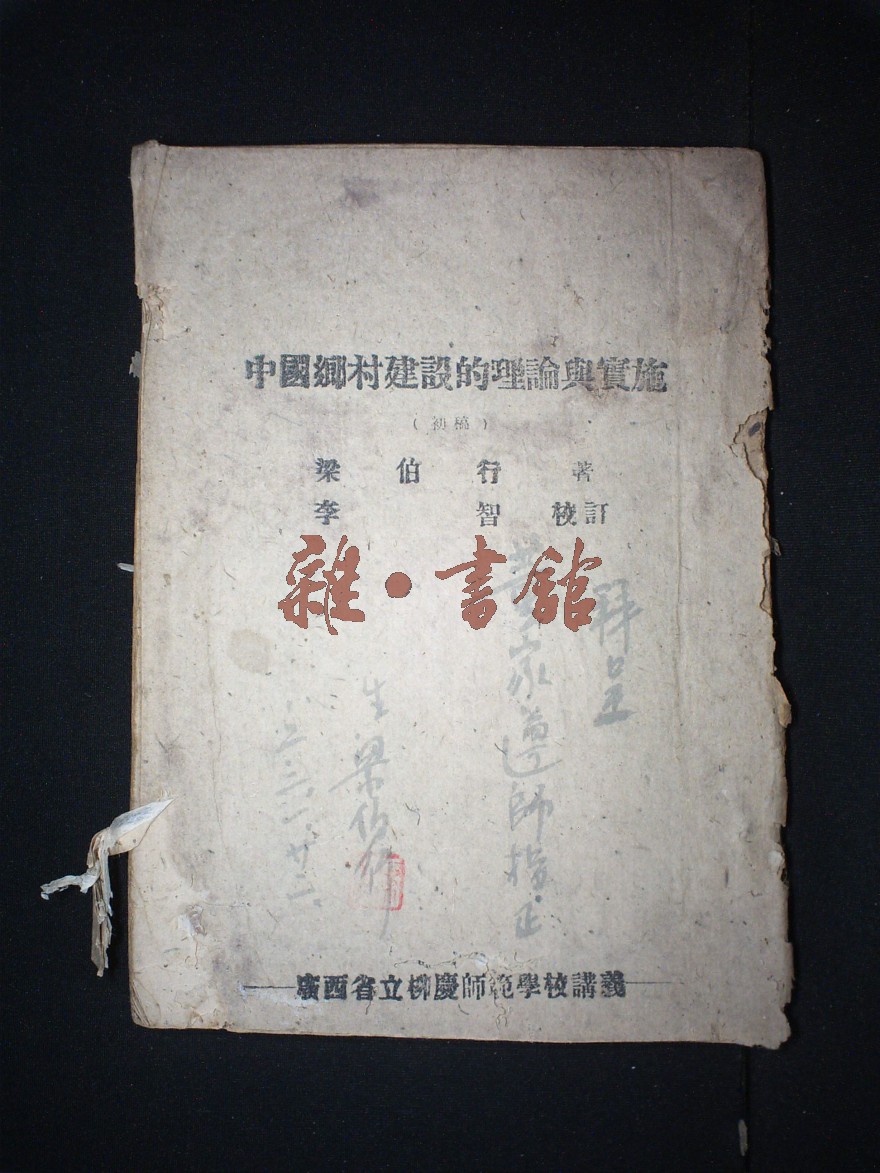 中國鄉村建設的理論與實施
（初稿）
梁伯行 著
李智 校訂
雜·書館
拜呈
家遵師指正
生梁伯行
三.一.廿二.
廣西省立柳慶師範學校講義